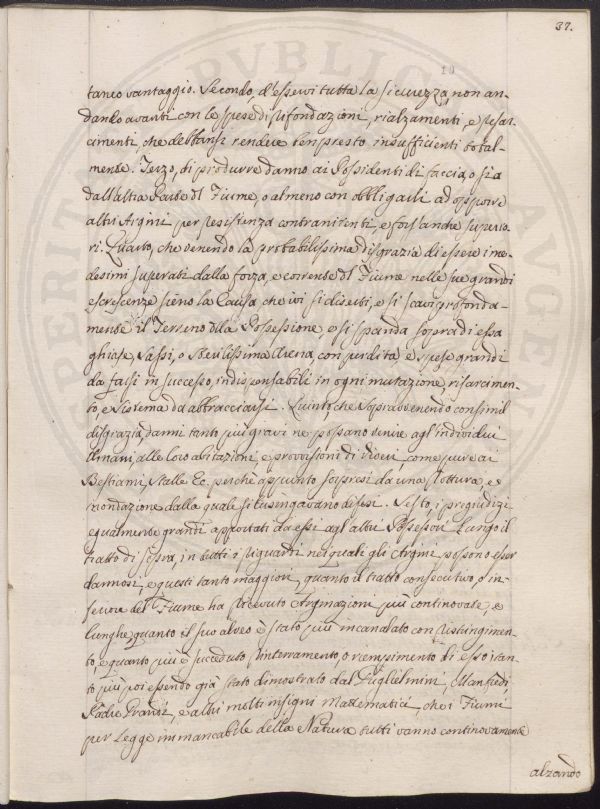 37.
taneo vantaggio. Secondo, d'esservi tutta la sicurezza, non an-
dando avanti con le spese di rifondazioni, rialzamenti, e risar-
cimenti, che debbansi rendere ben presto insufficienti total-
mente. Terzo, di produrre danno ai Possidenti di faccia, o sia
dall'altra Parte del Fiume, o almeno con obbligarli ad opporre
altri Argini per resistenza contranitenti, e fors'anche superio-
ri. Quarto, che venendo la probabilissima disgrazia di essere i me-
desimi superati dalla forza, e corrente del Fiume nelle sue grandi
escrescenze sieno la Causa che ivi si diserti, e si scavi profonda-
mente il Terreno della Possessione, e si spanda sopra di essa
ghiare, Sassi, o Sterilissima Arena, con perdita e spese grandi
da farsi in successo, indispensabili in ogni mutazione, risarcimen-
to, e Sistema da abbracciarsi. Quinto, che sopravvenendo consimil
disgrazia, danni tanto più gravi ne possano venire agl'individui
Umani, alle loro abitazioni, e provvisioni di viveri, come pure ai
Bestiami, Stalle Ec. perchè appunto sorpresi da una Rottura, e
montazione dalla quale si lusingavano difesi. Sesto, i pregiudizi
egualmente grandi apportati da essi agl'altri Possessori Lungo il
tratto di sopra, in tutti i riguardi ne' quali gli Argini possono esser
dannosi, e questi tanto maggiori, quanto il tratto consecutivo, o in-
feriore del Fiume ha ricevuto Arginazioni più continovate, e
lunghe, quanto il suo alveo è stato più incanalato con ristringimen-
to, e quanto più è succeduto rinterramento, o riempimento di esso; tan-
to più poi essendo già stato dimostrato dal Guglielmini, Manfredi,
Padre Grandi, e altri molti insigni Mattematici, che i Fiumi
per Legge immancabile della Natura tutti vanno continovamente
alzando